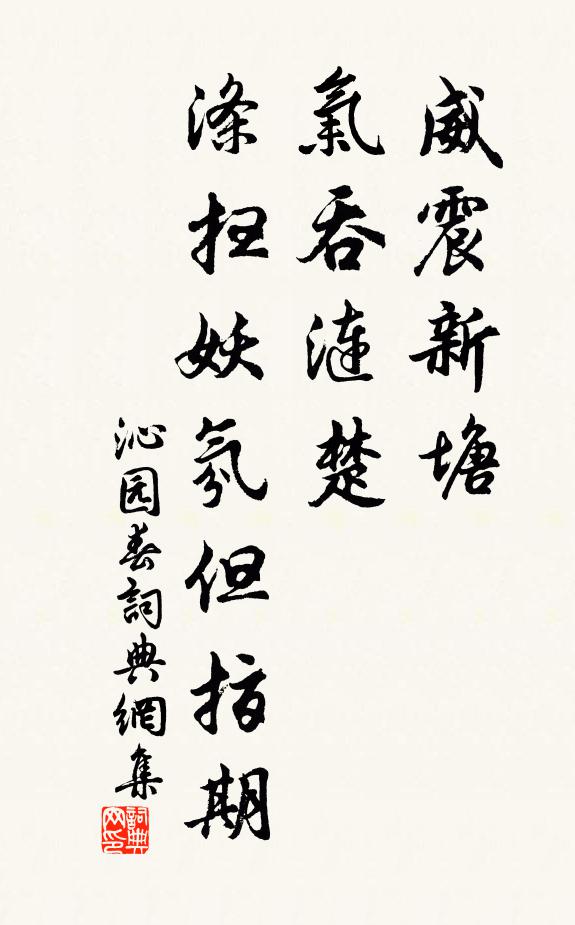 威震新塘
氣吞漣楚
滌扫妖氛但指期
沁园春詞典網集
詞典网印